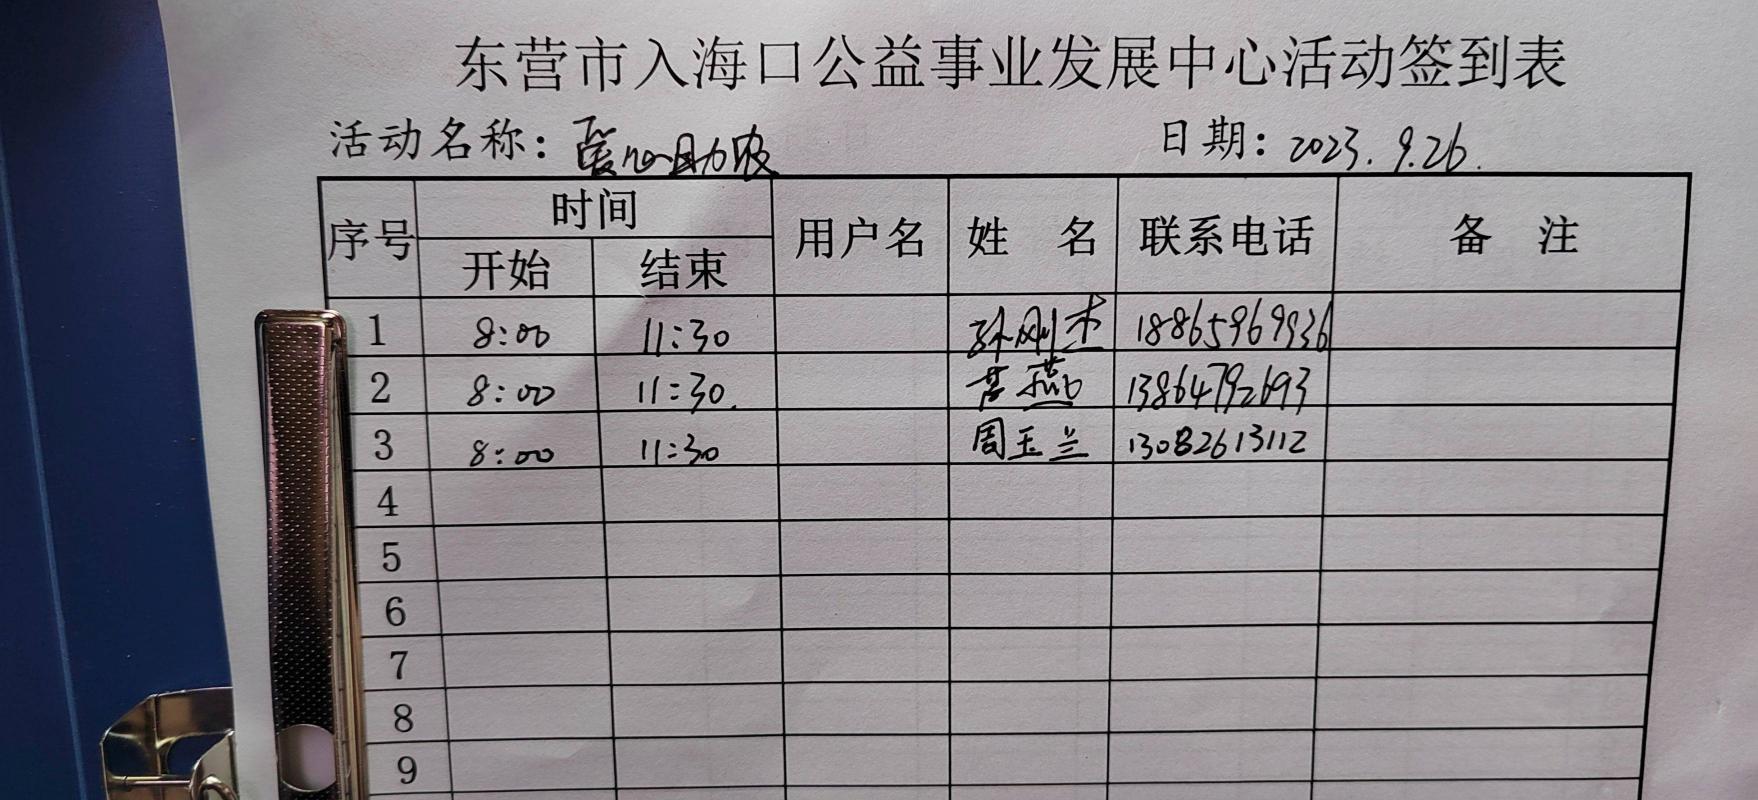 东营市入海口公益事业发展中心活动签到表
活动名称：爱心助农 日期：2023.9.26.
序号 时间 用户名 姓名 联系电话 备注
开始 结束
1 8:00 11:30 孙刚杰 18865969936
2 8:00 11:30. 燕 13864792693
3 8:00 11:30 周玉兰 13082613112
4
5
6
7
8
9